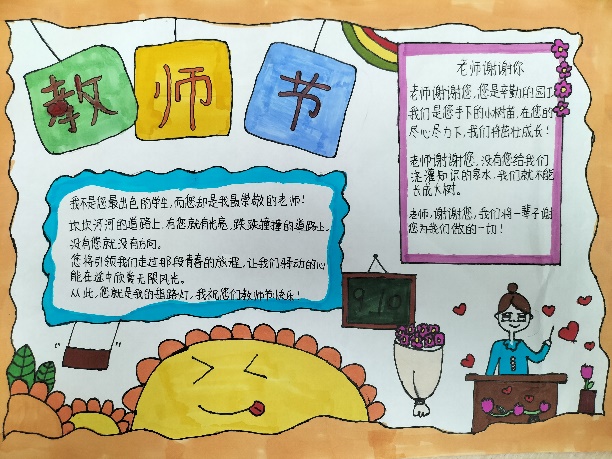 教师节
老师谢谢你
老师谢谢您,您是辛勤的园丁
我们是您手下的小树苗,在您的
尽心尽力下,我们将茁壮成长!
老师谢谢您,没有您给我们
浇灌知识的寒水,我们就不能
长成大树。
老师,谢谢您,我们将一辈子谢
您为我们做的一切!
我不是您最出色的学生,而您却是我最崇敬的老师!
坎坎河河的道路上,有您就有光亮,跌跌撞撞的道路上,
没有您就没有方向。
您将引领我们走过那段青春的旅程,让我们驿动的心
能在途中欣赏无限风光。
从此,您就是我的指路灯,我祝您们教师节快乐!